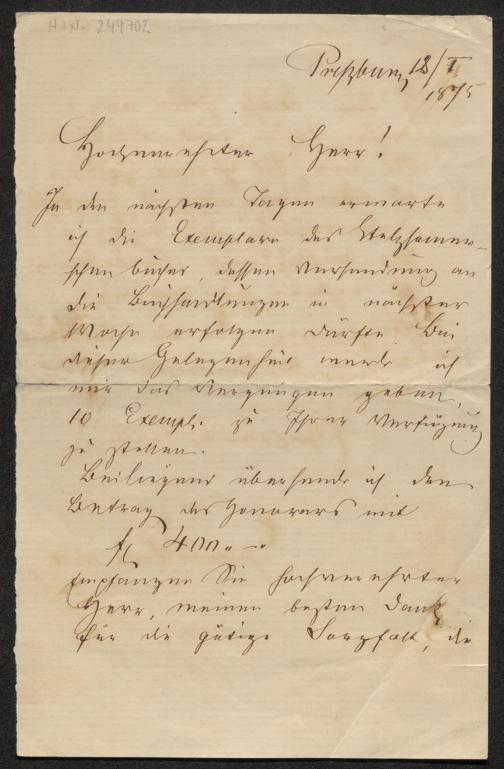 H.I.N. 249702
Preßburg 12/I
1875
Hochverehrter Herr!
In den nächsten Tagen erwarte
ich die Exemplare des Stelzhamer-
schen Buches, dessen Versendung an
die Buchhandlungen in nächster
Woche erfolgen dürfte. Bei
dieser Gelegenheit werde ich
mir das Vergnügen geben,
10 Exempl. zu Ihrer Verfügung
zu stellen.
Beiliegend übersende ich den
Betrag des Honorars mit
fl 400.. —
Empfangen Sie hochverehrter
Herr, meinen besten Dank
für die gütige Sorgfalt, die